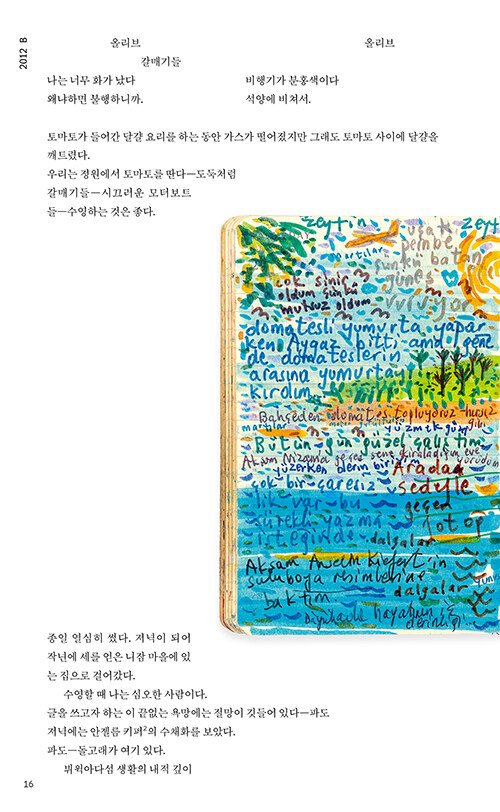 2012 B
올리브
올리브
갈매기들
나는 너무 화가 났다
비행기가 분홍색이다
왜냐하면 불행하니까.
석양에 비쳐서.
토마토가 들어간 달걀 요리를 하는 동안 가스가 떨어졌지만 그래도 토마토 사이에 달걀을
깨트렸다.
우리는 정원에서 토마토를 딴다—도둑처럼
갈매기들—시끄러운 모터보트
들—수영하는 것은 좋다.
zeytin
zeyt
uçak
pembe
martılar
çünkü batan
güneş
vuruyor
çok sinir
oldum çünkü
mutsuz oldum
domatesli yumurta yapar
ken Aygaz bitti ama gene
de domateslerin
arasına yumurtayı
kırdım
Bahçeden domates topluyoruz hırsız
gibi
martılar
yüzmek güzel
Bütün gün güzel çalıştım
Akşam Nizamda geçen sene kiraladığım eve
yürüdüm
yüzerken derin biriyim
Aradan
çok bir çaresiz
sedefle
lik var bu
geçen
sürekli yazma
isteğinde
dalgalar
Akşam Anselm Kiefer'in
suluboya resimlerine
dalgalar
baktım
Büyükada hayatının iç
derinliği
종일 열심히 썼다. 저녁이 되어
작년에 세를 얻은 니잠 마을에 있
는 집으로 걸어갔다.
수영할 때 나는 심오한 사람이다.
글을 쓰고자 하는 이 끝없는 욕망에는 절망이 깃들어 있다—파도
저녁에는 안젤름 키퍼2의 수채화를 보았다.
파도—돌고래가 여기 있다.
뷔윅아다섬 생활의 내적 깊이
16